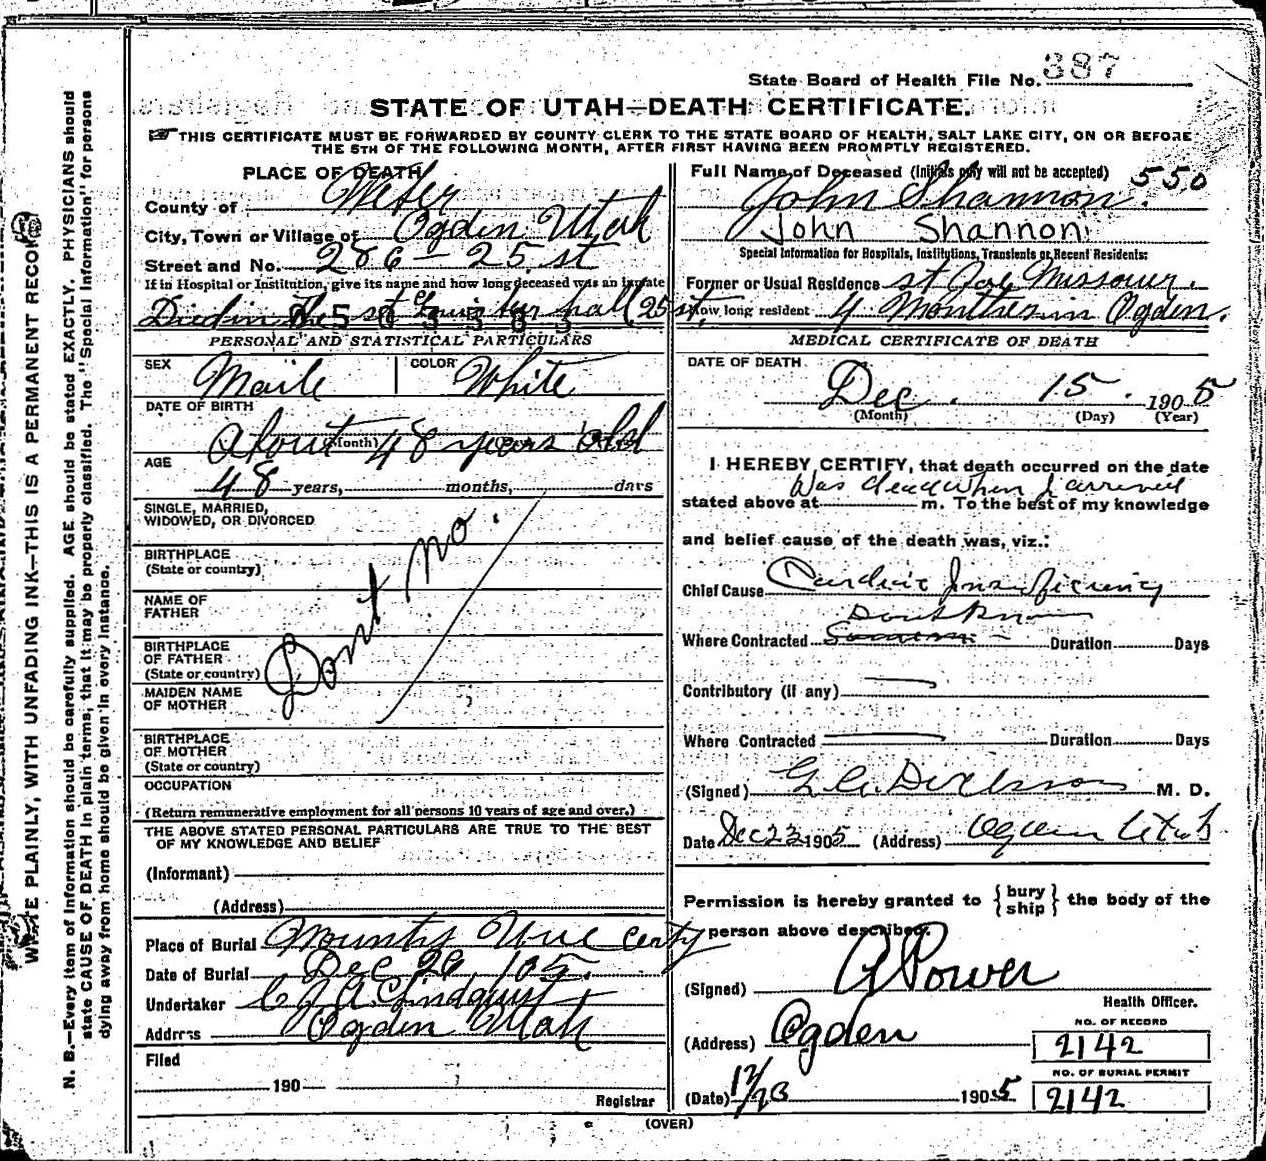 State Board of Health File No. 387
STATE OF UTAH—DEATH CERTIFICATE.
THIS CERTIFICATE MUST BE FORWARDED BY COUNTY CLERK TO THE STATE BOARD OF HEALTH, SALT LAKE CITY, ON OR BEFORE
THE 5TH OF THE FOLLOWING MONTH, AFTER FIRST HAVING BEEN PROMPTLY REGISTERED.
PLACE OF DEATH
County of Weber
City, Town or Village of Ogden Utah
Street and No. 286 - 25. st
If in Hospital or Institution, give its name and how long deceased was an inmate
Died in the st Louis hall (25 st,
PERSONAL AND STATISTICAL PARTICULARS
SEX Maile COLOR White
DATE OF BIRTH
About 48 years old
(Month)
AGE
48 years, months, days
SINGLE, MARRIED,
WIDOWED, OR DIVORCED
BIRTHPLACE
(State or country)
NAME OF
FATHER
Dont no.
BIRTHPLACE
OF FATHER
(State or country)
MAIDEN NAME
OF MOTHER
BIRTHPLACE
OF MOTHER
(State or country)
OCCUPATION
(Return remunerative employment for all persons 10 years of age and over.)
THE ABOVE STATED PERSONAL PARTICULARS ARE TRUE TO THE BEST
OF MY KNOWLEDGE AND BELIEF
(Informant)
(Address)
Place of Burial Mounty
Date of Burial Dec 20, 105.
Undertaker C J A Lindquist
Address Ogden Utah
Filed
190
Registrar
Full Name of Deceased (Initials only will not be accepted) 550
John Shannon.
John Shannon
Special Information for Hospitals, Institutions, Transients or Recent Residents:
Former or Usual Residence st Joe Missouri.
How long resident 4 Monthes in Ogden.
MEDICAL CERTIFICATE OF DEATH
DATE OF DEATH
Dec. 15. 1905
(Month) (Day) (Year)
I HEREBY CERTIFY, that death occurred on the date
Was dead when I arrived
stated above at m. To the best of my knowledge
and belief cause of the death was, viz.:
Chief Cause Cardiac Insufficiency
Dont Know
Where Contracted Duration Days
Contributory (if any)
Where Contracted Duration Days
(Signed) G. A. Dickson M. D.
Date Dec 23 1905 (Address) Ogden Utah
Permission is hereby granted to { bury ship } the body of the
person above described.
(Signed) A Power
Health Officer.
(Address) Ogden
NO. OF RECORD
2142
NO. OF BURIAL PERMIT
(Date) 12/23 1905 2142
(OVER)
WRITE PLAINLY, WITH UNFADING INK—THIS IS A PERMANENT RECORD.
N. B.—Every item of information should be carefully supplied. AGE should be stated EXACTLY. PHYSICIANS should
state CAUSE OF DEATH in plain terms, that it may be properly classified. The "Special Information" for persons
dying away from home should be given in every instance.